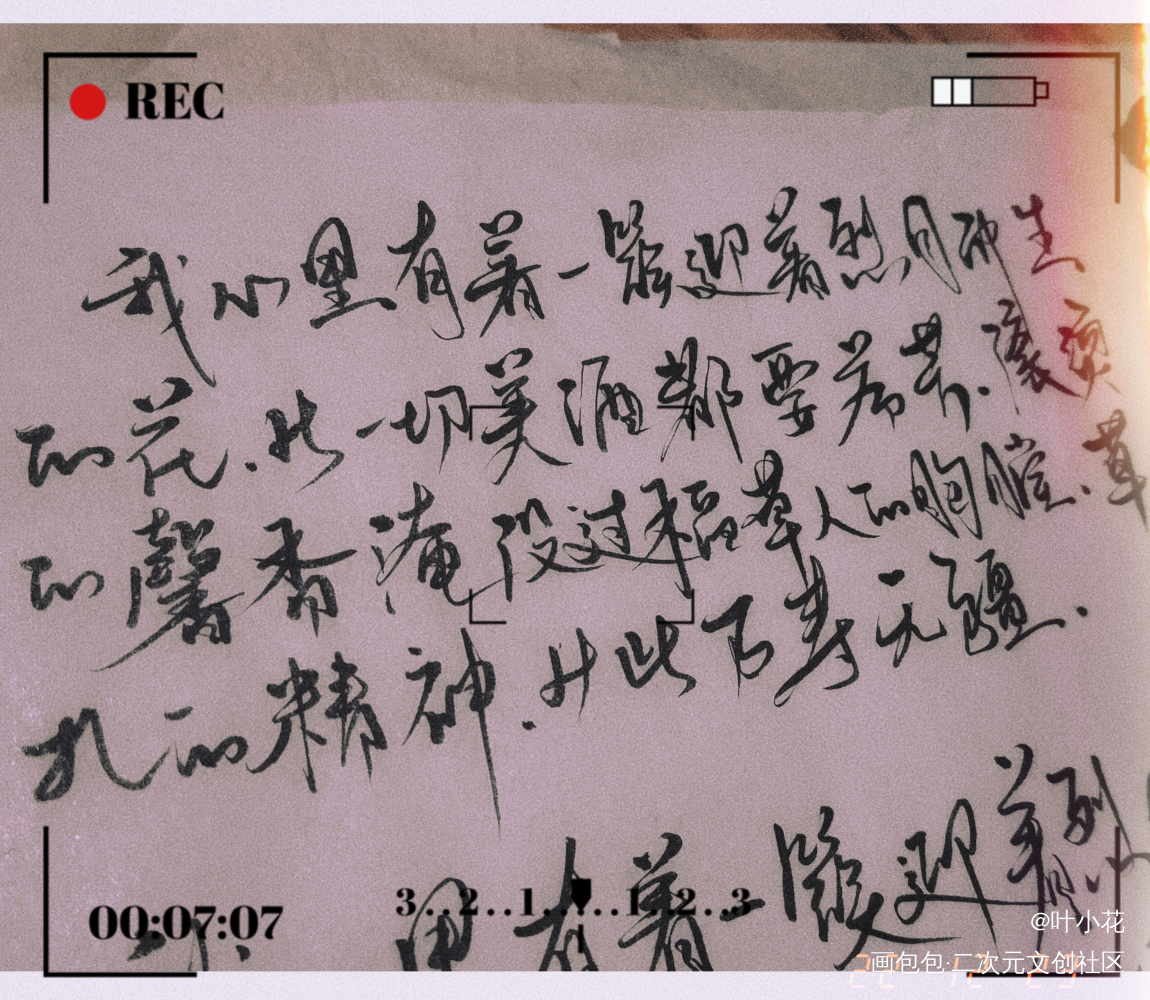 REC
我心里有着一簇迎着烈日而生
的花.比一切美酒都要芬芳.滚烫
的馨香淹没过稻草人的胸膛.草
扎的精神.从此万寿无疆.
里有着一簇迎着烈
3..2..1......1..2..3
00:07:07
@叶小花
画包包·二次元文创社区